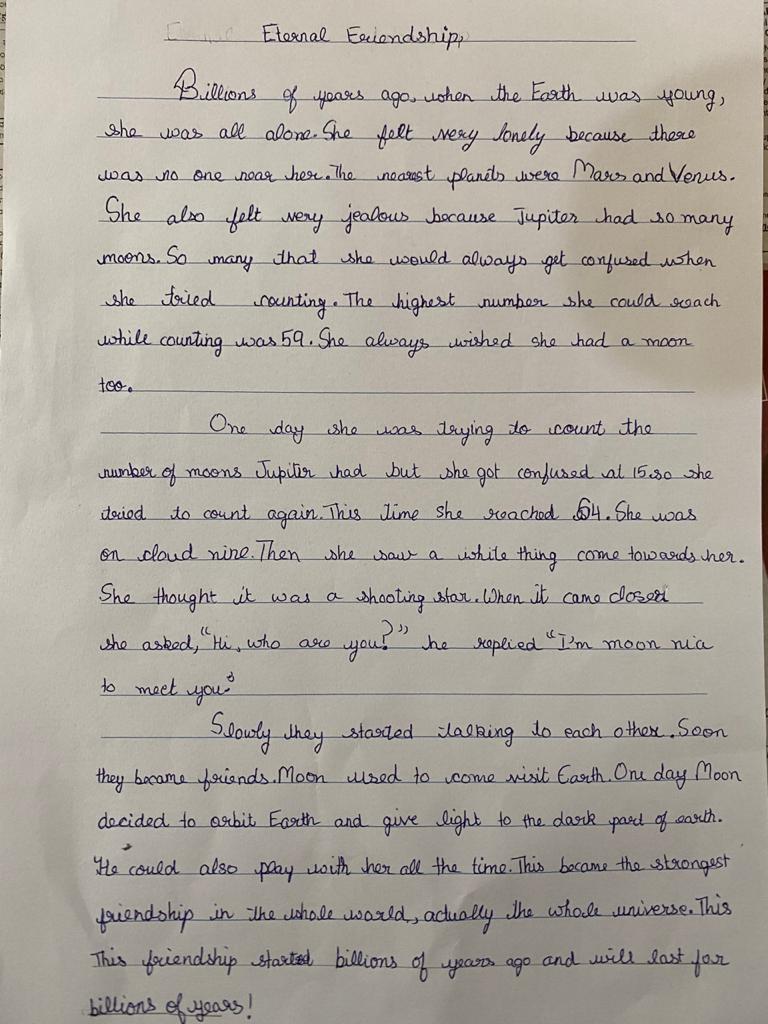 Eternal Friendship,
Billions of years ago, when the Earth was young,
she was all alone. She felt very lonely because there
was no one near her. The nearest planets were Mars and Venus.
She also felt very jealous because Jupiter had so many
moons. So many that she would always get confused when
she tried counting. The highest number she could reach
while counting was 59. She always wished she had a moon
too.
One day she was trying to count the
number of moons Jupiter had but she got confused at 15. so she
tried to count again. This time she reached 64. She was
on cloud nine. Then she saw a white thing come towards her.
She thought it was a shooting star. When it came closer
she asked, "Hi, who are you?" he replied "I'm moon nice
to meet you"
Slowly they started talking to each other. Soon
they became friends. Moon used to come visit Earth. One day Moon
decided to orbit Earth and give light to the dark part of earth.
He could also play with her all the time. This became the strongest
friendship in the whole world, actually the whole universe. This
This friendship started billions of years ago and will last for
billions of years!